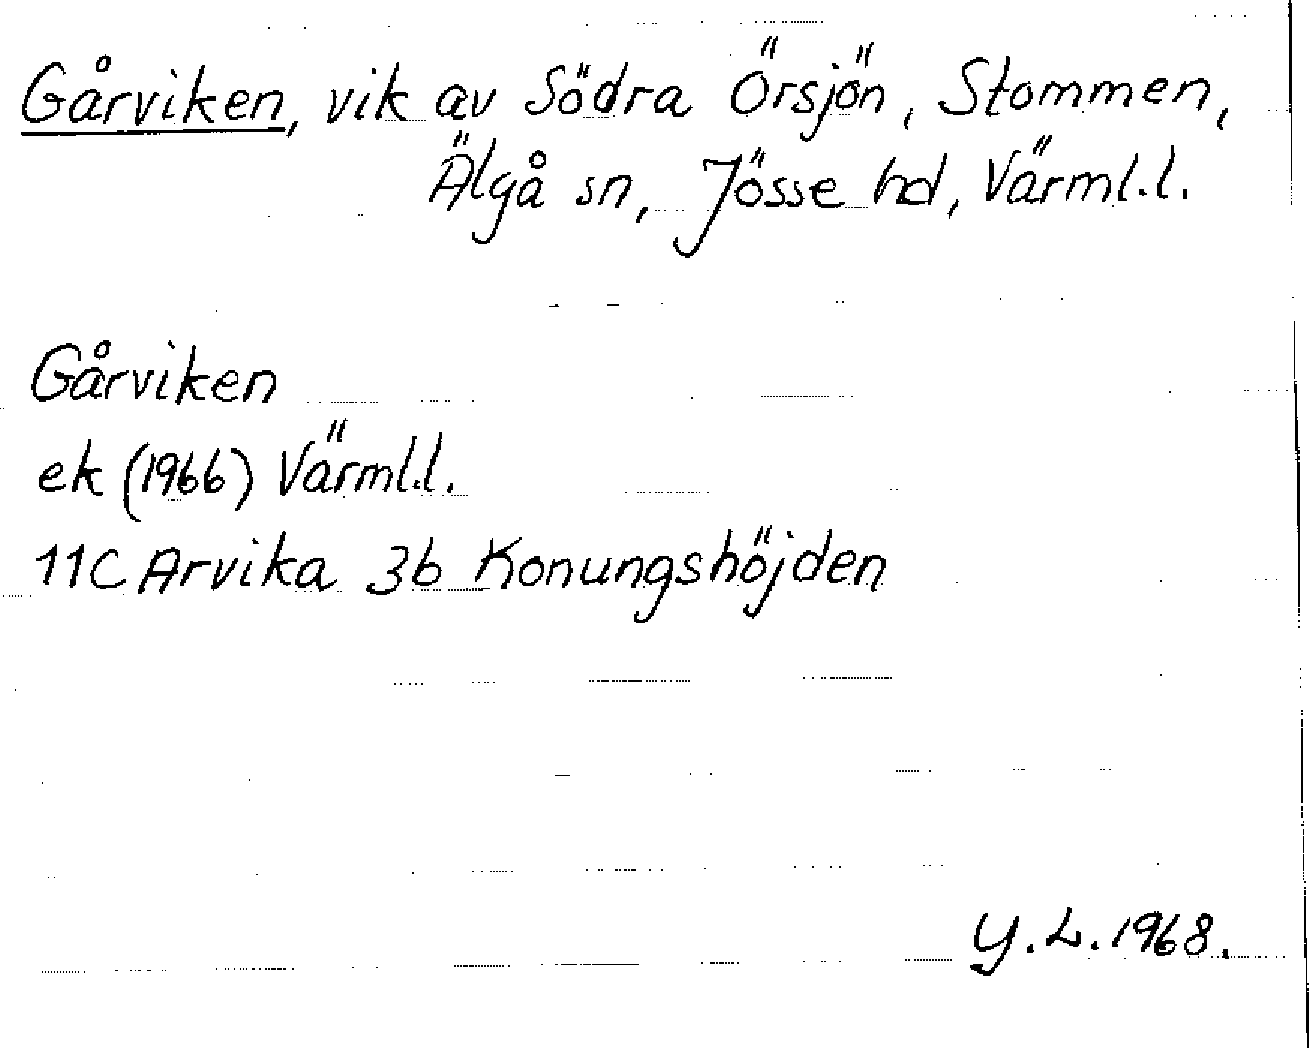 Gårviken, vik av Södra Örsjön, Stommen,
Älgå sn, Jösse hd, Värml.l.
Gårviken
ek (1966) Värml.l.
11C Arvika 3b Konungshöjden
Y.L.1968.